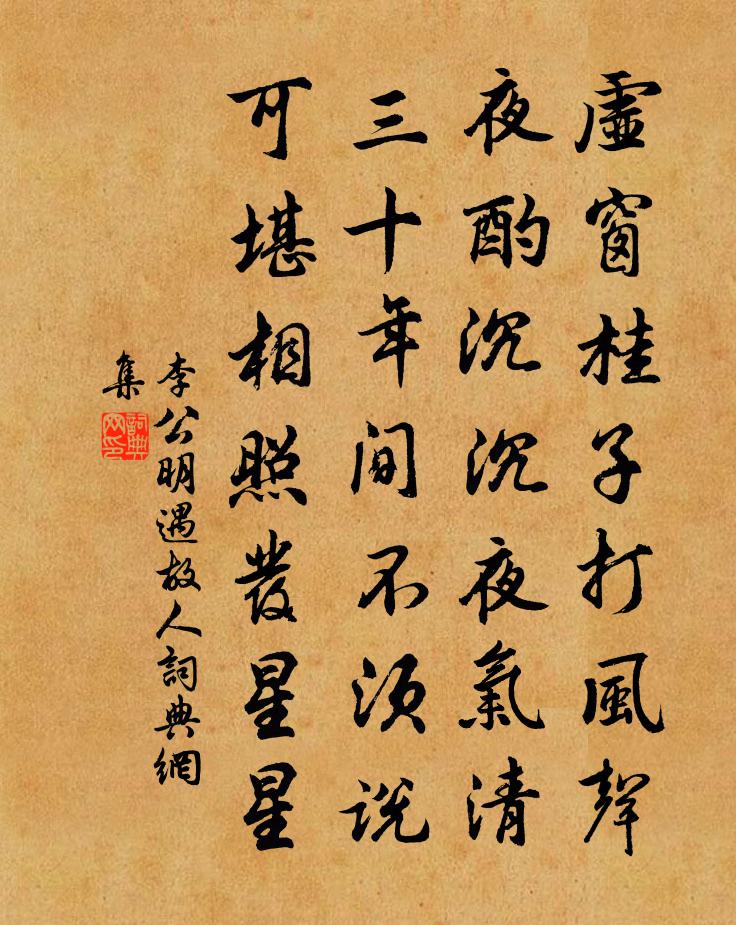 虛窗桂子打風聲
夜酌沉沉夜氣清
三十年間不須說
可堪相照發星星
李公明遇故人詞典網
集
詞典網印